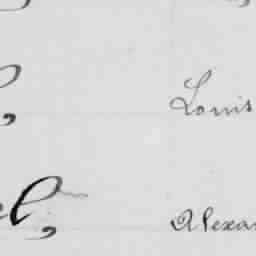 Louis
el, Alexan